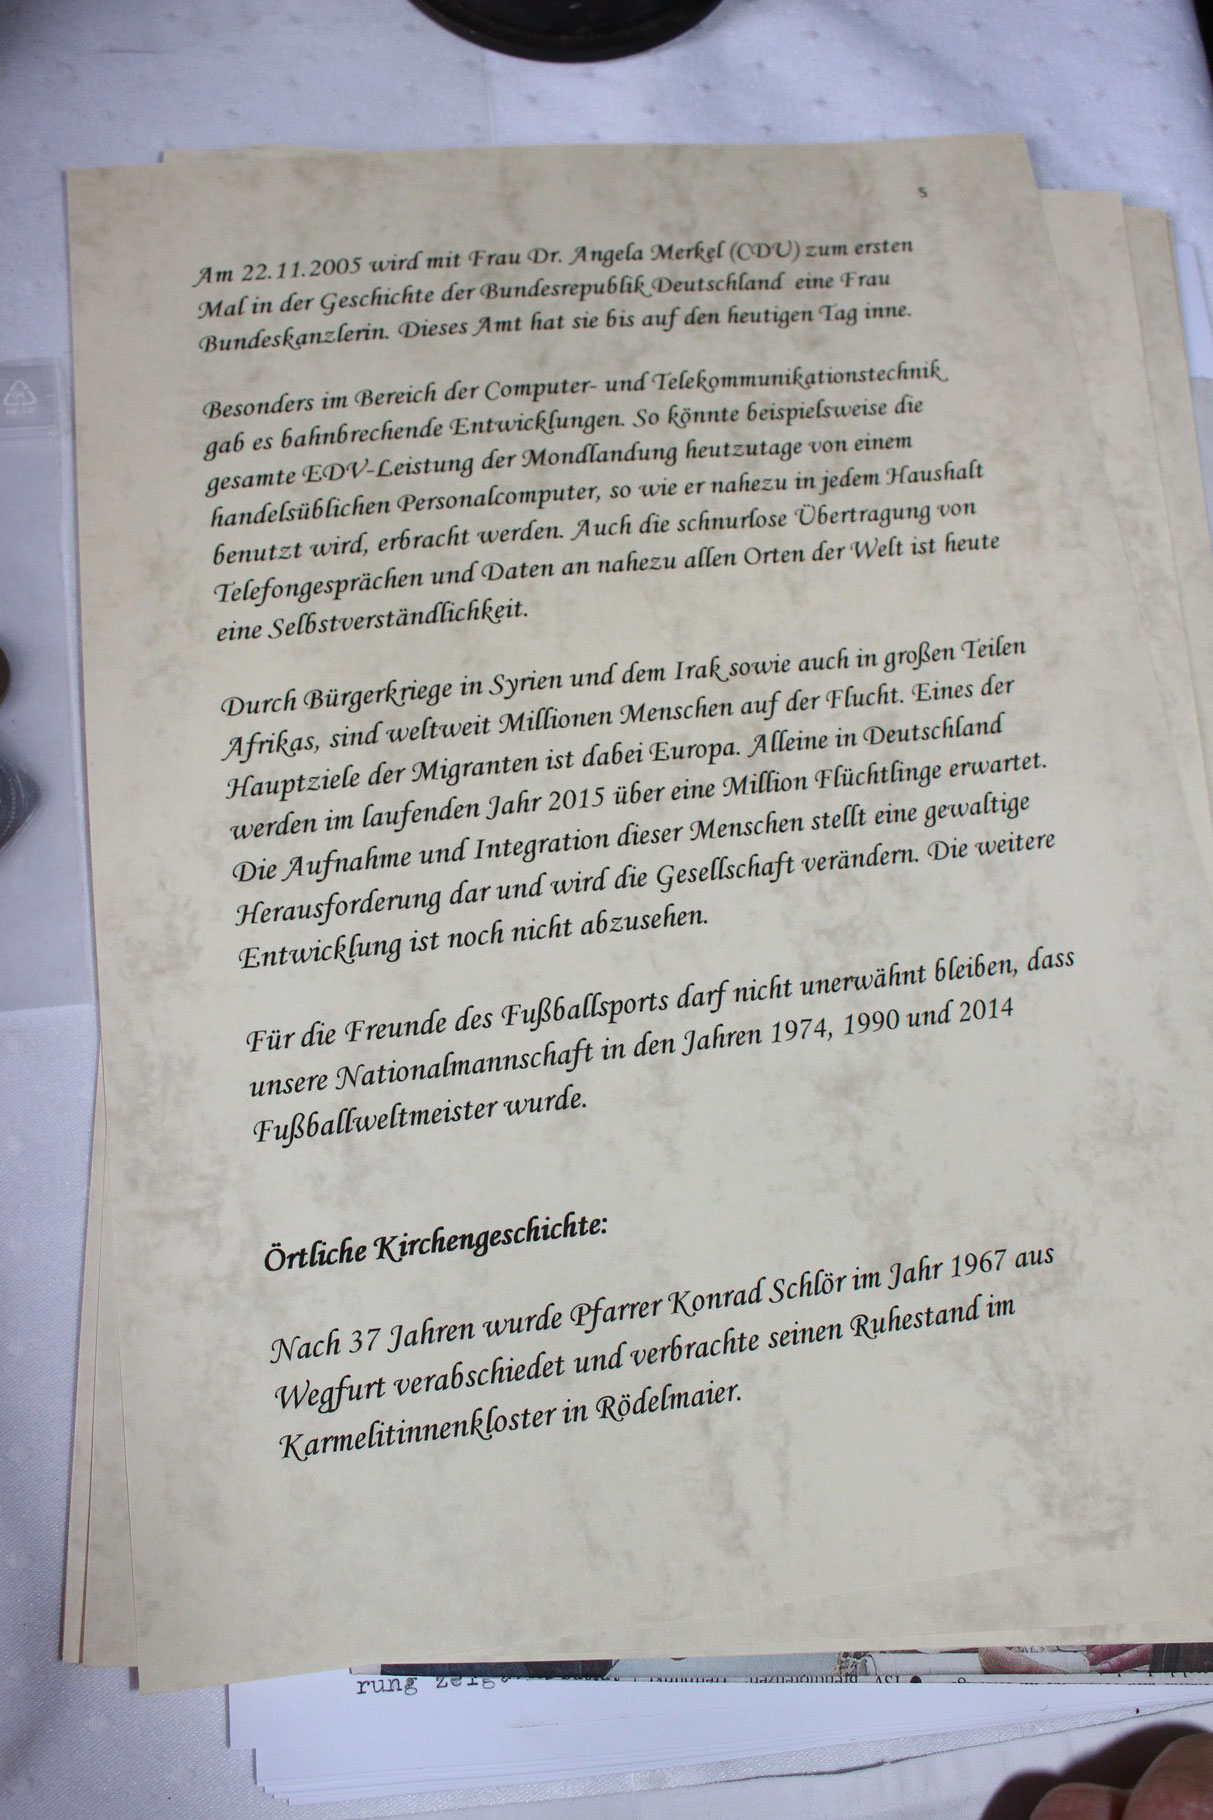 5
Am 22.11.2005 wird mit Frau Dr. Angela Merkel (CDU) zum ersten
Mal in der Geschichte der Bundesrepublik Deutschland eine Frau
Bundeskanzlerin. Dieses Amt hat sie bis auf den heutigen Tag inne.
Besonders im Bereich der Computer- und Telekommunikationstechnik
gab es bahnbrechende Entwicklungen. So könnte beispielsweise die
gesamte EDV-Leistung der Mondlandung heutzutage von einem
handelsüblichen Personalcomputer, so wie er nahezu in jedem Haushalt
benutzt wird, erbracht werden. Auch die schnurlose Übertragung von
Telefongesprächen und Daten an nahezu allen Orten der Welt ist heute
eine Selbstverständlichkeit.
Durch Bürgerkriege in Syrien und dem Irak sowie auch in großen Teilen
Afrikas, sind weltweit Millionen Menschen auf der Flucht. Eines der
Hauptziele der Migranten ist dabei Europa. Alleine in Deutschland
werden im laufenden Jahr 2015 über eine Million Flüchtlinge erwartet.
Die Aufnahme und Integration dieser Menschen stellt eine gewaltige
Herausforderung dar und wird die Gesellschaft verändern. Die weitere
Entwicklung ist noch nicht abzusehen.
Für die Freunde des Fußballsports darf nicht unerwähnt bleiben, dass
unsere Nationalmannschaft in den Jahren 1974, 1990 und 2014
Fußballweltmeister wurde.
Örtliche Kirchengeschichte:
Nach 37 Jahren wurde Pfarrer Konrad Schlör im Jahr 1967 aus
Wegfurt verabschiedet und verbrachte seinen Ruhestand im
Karmelitinnenkloster in Rödelmaier.
rung